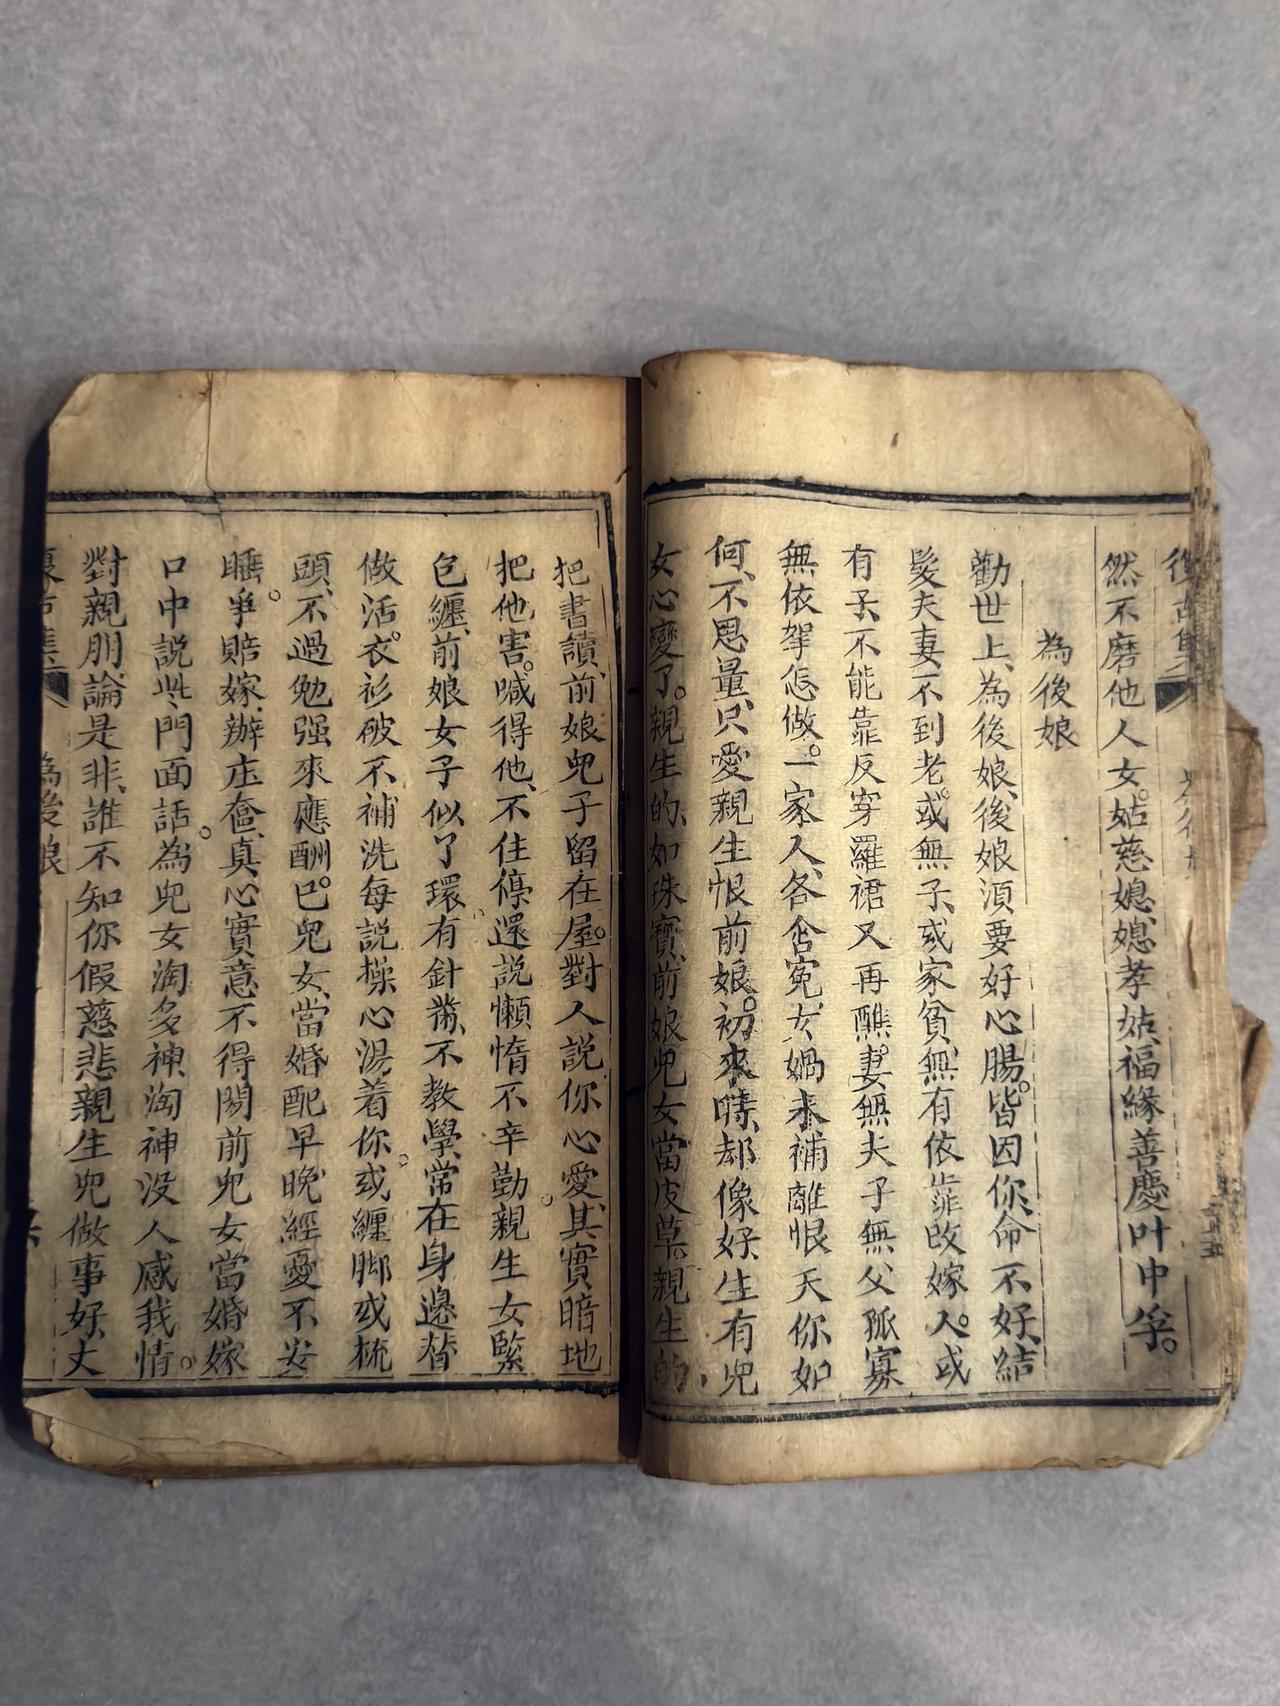 復古集
然不磨他人女。姑慈媳、媳孝姑、福緣善慶叶中孚。
為後娘
勸世上、為後娘、後娘湏要好心腸。皆因你、命不好、結
髮夫妻不到老。或無子、或家貧、無有依靠改嫁人。或
有子、不能靠反穿羅裙又再醮。妻無夫子無父孤寡
無依犂怎做。一家人、各含寃、女媧未補離恨天你如
何、不思量、只愛親生恨前娘。初來時、却像好、生有兒
女心變了。親生的、如珠寶、前娘兒女當皮草、親生的、
把書讀、前娘兒子留在屋。對人說你心愛、其實暗地
把他害。喊得他、不住停、還說懶惰不辛勤。親生女緊
包纏、前娘女子似了環有針黹、不教學、常在身邊替
做活。衣衫破不補洗每說操心湯着你。或纏脚或梳
頭、不過勉强來應酬。巴兒女、當婚配早晚經憂不安
睡。爭賠嫁、辦庄奩、真心實意不得閑前兒女當婚嫁
口中說些門面話。為兒女淘多神淘神没人感我情。
對親朋、論是非、誰不知你假慈悲親生兒做事好、丈
為後娘